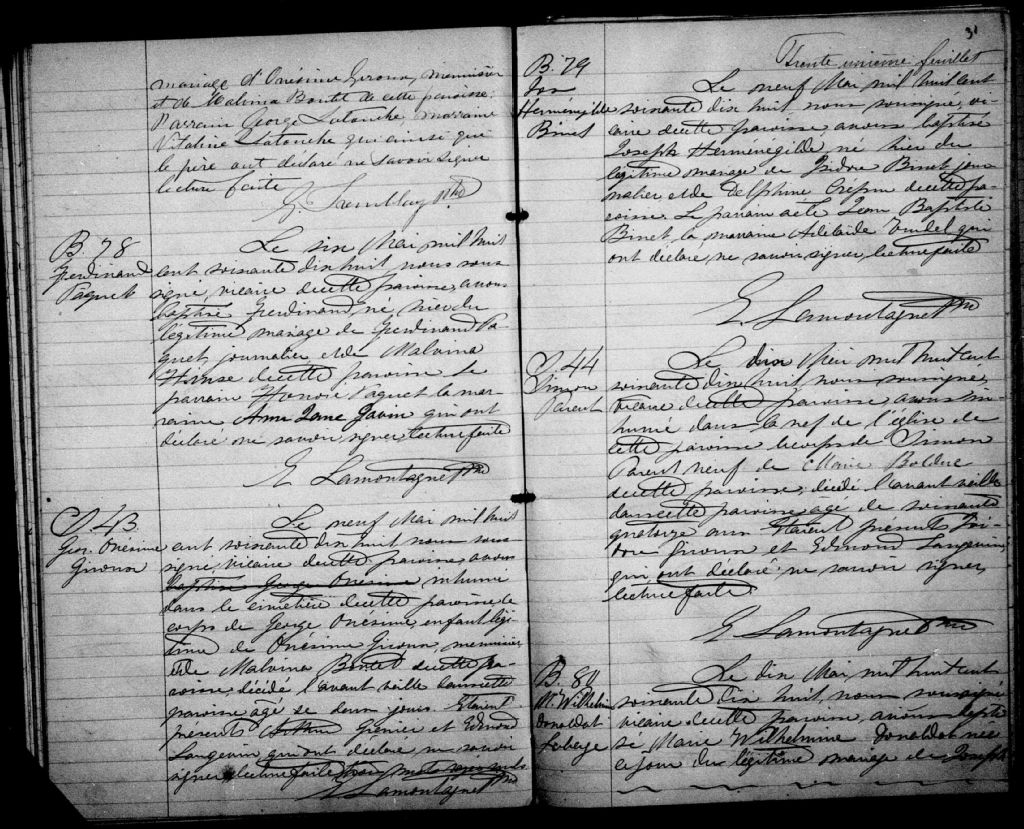 mariage d'Onésime Giroux, menuisier
et de Malvina Boutet de cette paroisse.
Parrain George Latouche, marraine
Vitaline Latouche qui ainsi que
le père ont déclaré ne savoir signer
lecture faite
E. Tremblay Ptre
B. 78
Ferdinand
Paquet
Le six Mai mil huit
cent soixante dix huit, nous sous
signé, vicaire de cette paroisse, avons
baptisé Ferdinand, né, hier du
légitime mariage de Ferdinand Pa-
quet, journalier et de Malvina
de cette paroisse Le
parrain Honoré Paquet la mar-
raine Ann Jane qui ont
déclaré ne savoir signer lecture faite
E Lamontagne Ptre
S. 43
Geo. Onésime
Giroux
Le neuf Mai mil huit
cent soixante dix huit nous sous
signé, vicaire de cette paroisse, avons
baptisé George Onésime inhumé
dans le cimetière de cette paroisse le
corps de George Onésime, enfant légi-
time de Onésime Giroux, menuisier,
et de Malvina Boutet de cette pa-
roisse, décédé l'avant veille dans cette
paroisse âgé de deux jours. Etaient
présents Arthur Grenier et Edmond
Langevin qui ont déclaré ne savoir
signer, lecture faite trois mots rayés nuls
E Lamontagne Ptre
31
Trente unième feuillet
B. 79
Jos
Herménégilde
Binet
Le neuf Mai mil huit cent
soixante dix huit nous soussigné, vi-
caire de cette paroisse avons baptisé
Joseph Herménégilde né hier du
légitime mariage de Isidore Binet jour
nalier et de Delphine Crépin de cette pa-
roisse. Le parrain a été Jean Baptiste
Binet, la marraine Adelaïde Trudel qui
ont déclaré, ne savoir signer, lecture faite
E. Lamontagne Ptre
S. 44
Simon
Parent
Le dix Mai mil huit cent
soixante dix huit, nous soussigné,
vicaire de cette paroisse avons in-
humé dans la nef de l'église de
cette paroisse le corps de Simon
Parent veuf de Marie Bolduc
de cette paroisse, décédé l'avant veille
dans cette paroisse, âgé de soixante
quatorze ans Etaient présents Isi-
dore Giroux et Edmond Langevin,
qui ont déclaré, ne savoir signer,
lecture faite.
E Lamontagne Ptre
B. 80
M. Wilhelm.
Donalda
Leberge
Le dix Mai, mil huit cent
soixante dix huit, nous soussigné
vicaire de cette paroisse, avons bapti
sé, Marie Wilhelmine Donalda née
ce jour du légitime mariage de Joseph